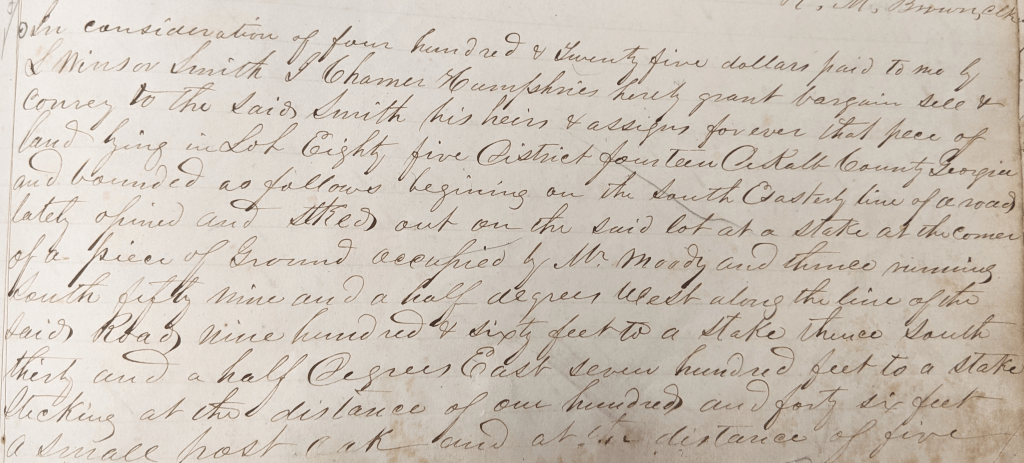 R. M. Brown, Clk
In consideration of four hundred & Twenty five dollars paid to me by
L Winsor Smith I Chamer Humphries herely grant bargain sell &
convey to the said Smith his heirs & assigns forever that pece of
land lying in Lot Eighty five District fourteen DeKalb County Georgia
and bounded as follows begining on the South Easterly line of a road
lately opined and stked out on the said lot at a stake at the corner
of a piece of Ground occupied by Mr. Moody and thence running
South fifty nine and a half degrees West along the line of the
said Road nine hundred & sixty feet to a stake thence south
thirty and a half Degrees East seven hundred feet to a stake
sticking at the distance of one hundred and forty six feet
a small post oak and at the distance of five